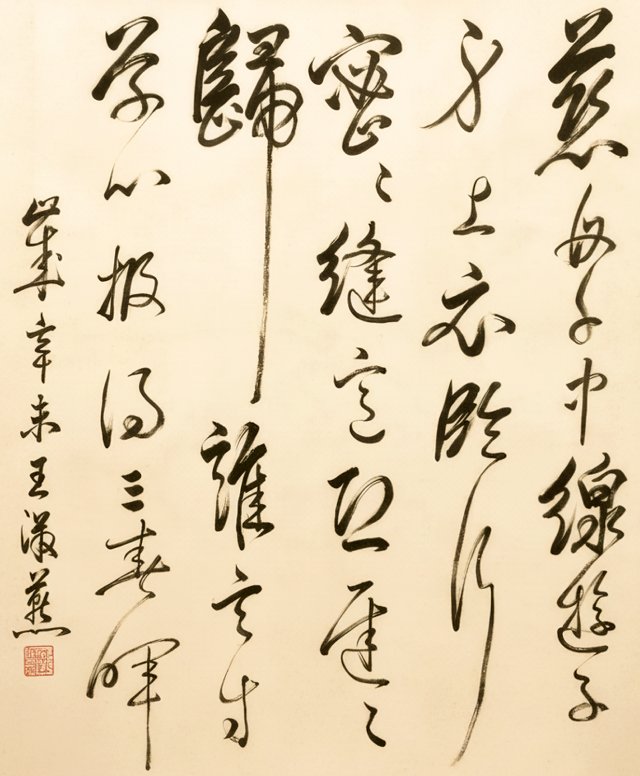 慈母手中線遊子
身上衣臨行
密〻縫意恐遲〻
歸誰言寸
草心報得三春暉
歲辛未王燕